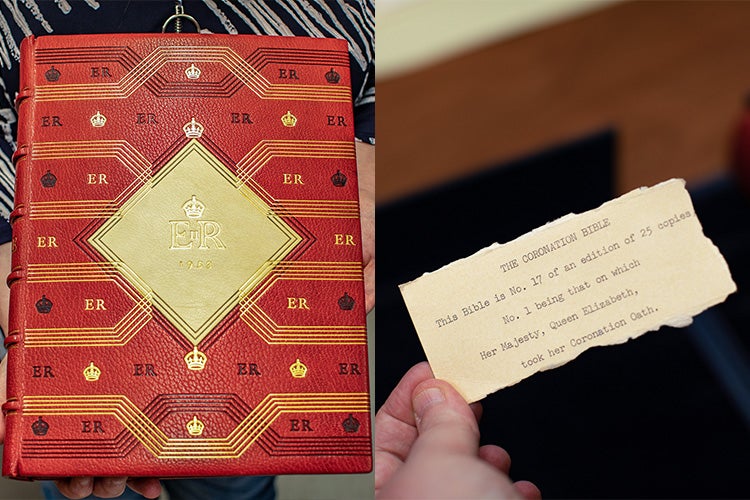 ER ER
ER ER ER ER
ER ER
ER EIIR ER
1953
ER ER
ER ER ER ER
ER ER
THE CORONATION BIBLE
This Bible is No. 17 of an edition of 25 copies
No. 1 being that on which
Her Majesty, Queen Elizabeth,
took her Coronation Oath.